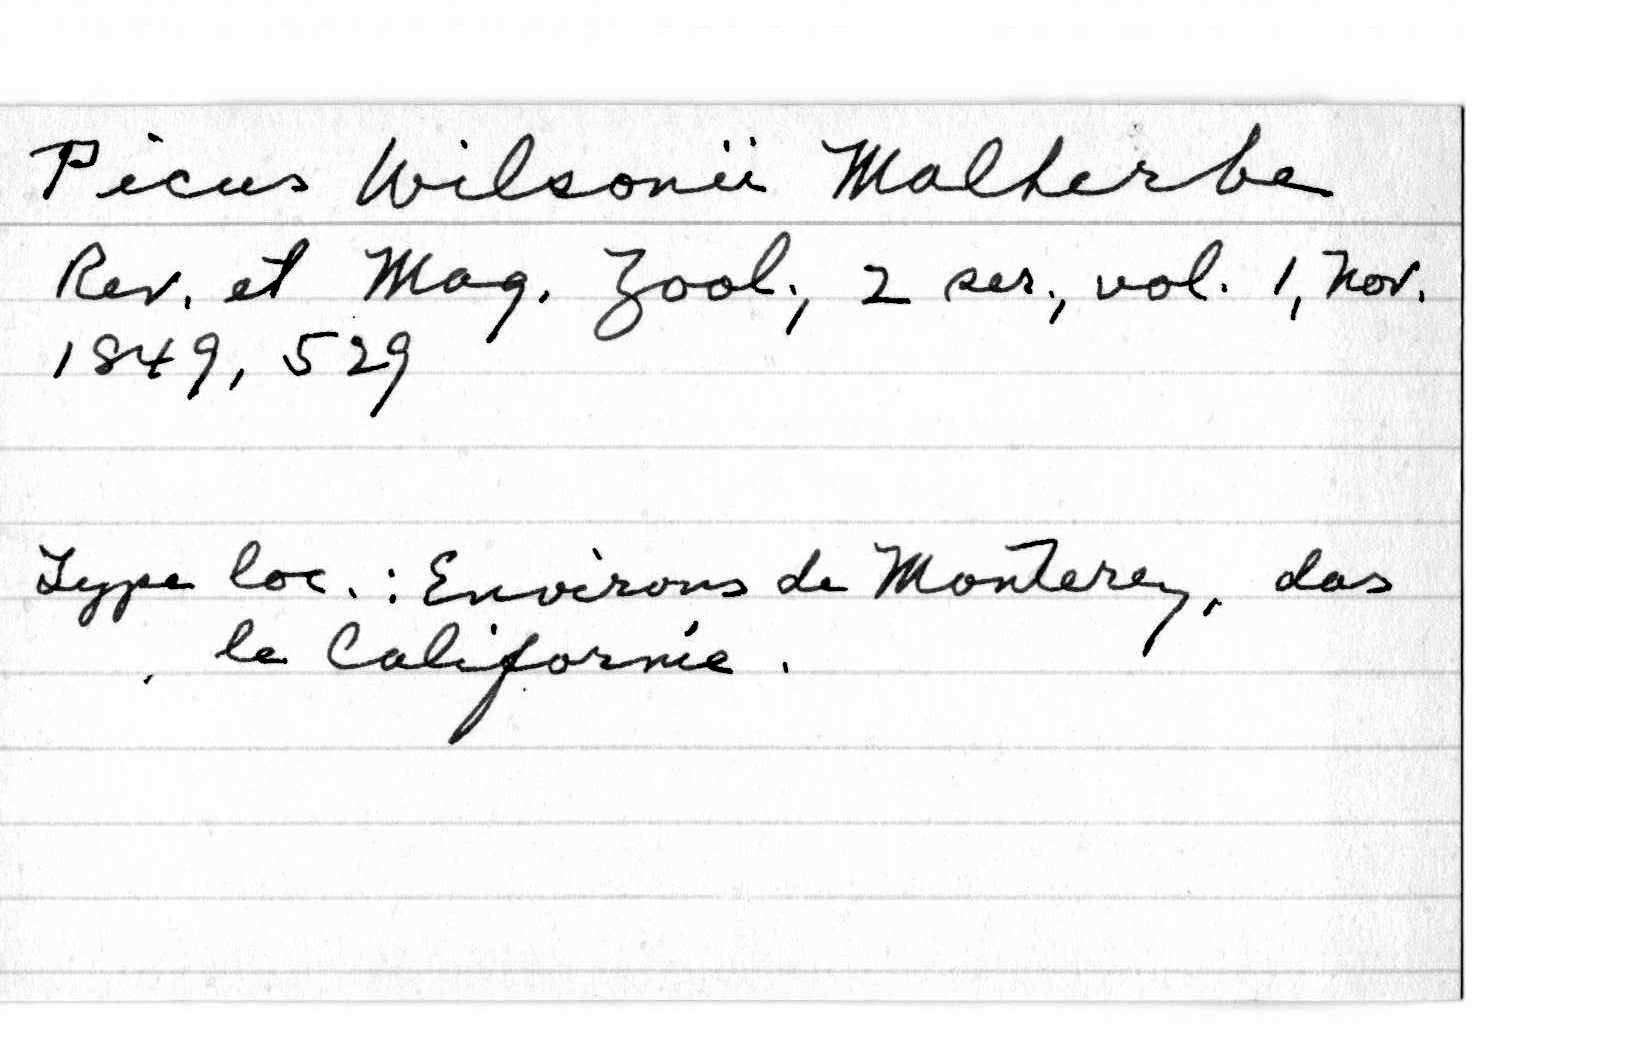 Picus Wilsonii Malherbe
Rev. et Mag. Zool., 2 ser., vol. 1, Nov.
1849, 529
Type loc.: Environs de Monterey, das
la Californie.